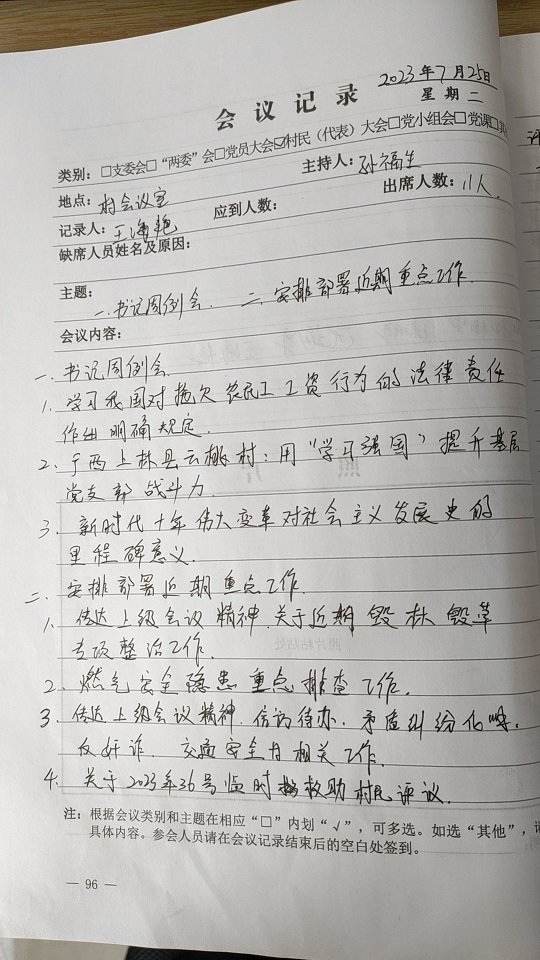 2023年7月25日
会议记录
星期二
类别：□支委会□“两委”会□党员大会☑村民（代表）大会□党小组会□党课□其
地点：村会议室
主持人：孙福生
记录人：王海艳
应到人数：
出席人数：11人.
缺席人员姓名及原因：
主题：
一.书记周例会. 二.安排部署近期重点工作.
会议内容：
一.书记周例会.
1.学习我国对拖欠农民工工资行为的法律责任
作出明确规定.
2、广西上林县云桃村：用“学习强国”提升基层
党支部战斗力.
3.新时代十年伟大变革对社会主义发展史的
里程碑意义.
二.安排部署近期重点工作.
1、传达上级会议精神关于近期毁林毁草
专项整治工作.
2、燃气安全隐患重点排查工作.
3、传达上级会议精神.信访待办.矛盾纠纷化解.
反奸诈.交通安全 相关工作.
4.关于2023年36号临时 救助村民评议.
注：根据会议类别和主题在相应“□”内划“√”，可多选。如选“其他”，请
具体内容。参会人员请在会议记录结束后的空白处签到。
— 96 —